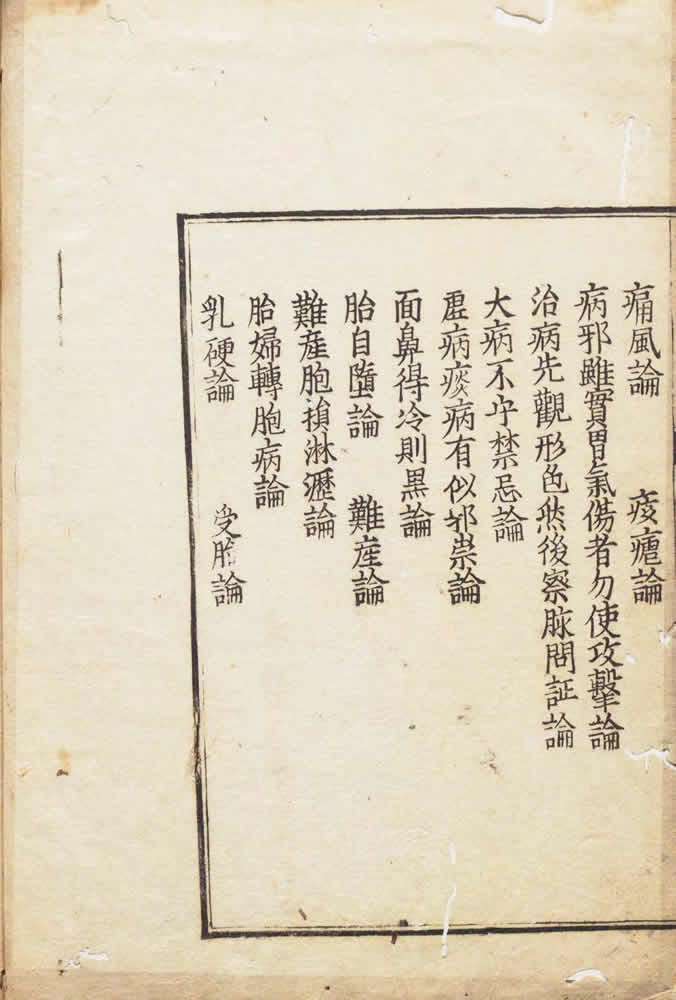 痛風論　痎瘧論
病邪雖實胃氣傷者勿使攻擊論
治病先觀形色然後察脉問証論
大病不守禁忌論
虛病痰病有似邪祟論
面鼻得冷則黑論
胎自墮論　難産論
難産胞損淋瀝論
胎婦轉胞病論
乳硬論　受胎論